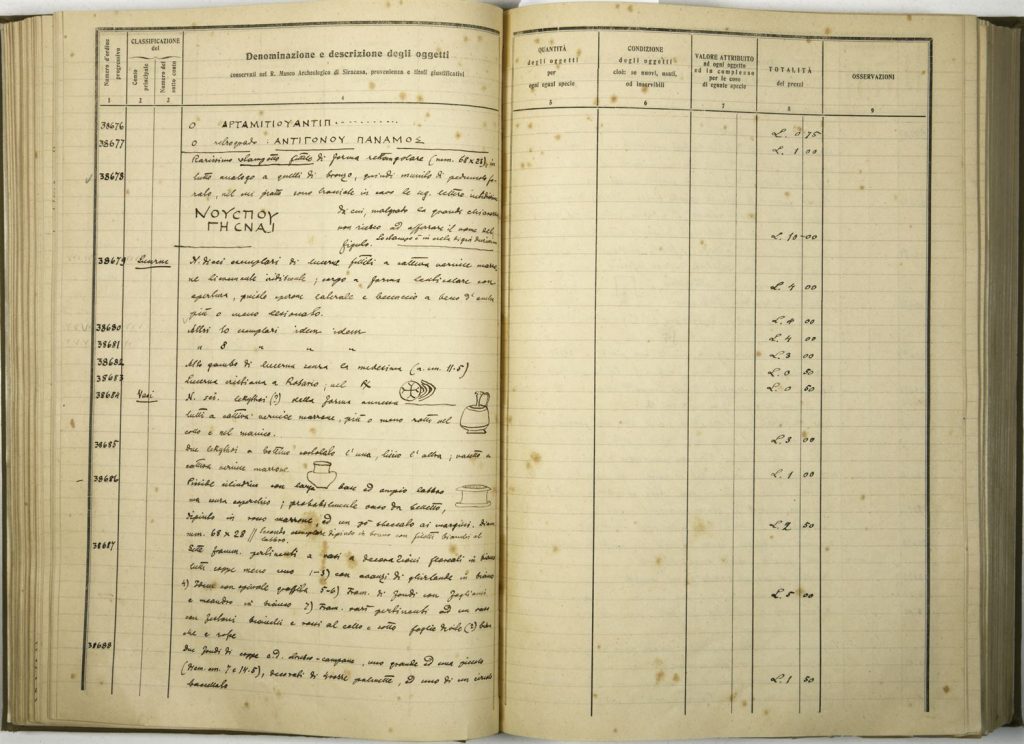 Numero d'ordine progressivo
CLASSIFICAZIONE del
Conto principale
Numero del sotto conto
Denominazione e descrizione degli oggetti
conservati nel R. Museo Archeologico di Siracusa, provenienza e titoli giustificativi
1 2 3 4
38676 O ΑΡΤΑΜΙΤΙΟΥΑΝΤΙΠ..........
38677 O retrogrado: ΑΝΤΙΓΟΝΟΥ ΠΑΝΑΜΟΣ
38678 Rarissimo stampetto fittile di forma rettangolare (mm. 68 x 28), in
tutto analogo a quelli di bronzo, quindi munito di peduncolo fo-
rato, nel cui piatto sono tracciate in cavo le sg. lettere
ΝΟΥϹΠΟΥ
ΓΗϹΝΑΙ
da cui, malgrado la grande chiarezza
non riesco ad afferrare il nome del
figulo.
38679 Lucerne N. dieci esemplari di lucerne fittili a cattiva vernice marro-
ne ; corpo a forma lenticolare con
apertura, laterale e beccuccio a becco d'
più o meno lesionato.
38680 Altri 10 esemplari idem idem
38681 " 8 " " "
38682 Alto gambo di lucerna senza la medesima (a. cm. 11.5)
38683 Lucerna cristiana a Rosario ; nel
38684 Vasi N. sei lekythoi (?) della forma annessa
tutti a cattiva vernice marrone, più o meno rotti nel
collo e nel manico.
38685 Due lekythoi a bottino l'una, liscio l'altra ; vasetto a
cattiva vernice marrone.
38686 Pisside cilindrica con larga base ed ampio labbro
ma senza coperchio ; probabilmente vaso da belletto,
dipinto in rosso marrone, ed un pò sbeccato ai margini. Diam.
mm. 68 x 28 // Secondo esemplare dipinto in bruno con filetti bianchi al
labbro.
38687 Sette framm. pertinenti a vasi a decorazioni floreali in bianco
tutti coppe meno uno 1-3) con avanzi di ghirlande in bianco
4) con spirale graffita 5-6) Fram. di fondi con
e meandro in bianco 7) Fram. vasi pertinenti ad un vaso
con festoni bianchi e rossi al collo e sotto foglie d'edile (?) bian-
che e rosse
38688 Due fondi di coppe c.d. etrusco-campane, uno grande ed uno piccolo
(diam. cm. 7 e 14.5), decorati di grosse palmette, ed uno di un circolo
baccellato
QUANTITÀ degli oggetti per ogni egual specie
CONDIZIONE degli oggetti cioè: se nuovi, usati, od inservibili
VALORE ATTRIBUITO ad ogni oggetto ed in complesso per le cose di eguale specie
TOTALITÀ dei prezzi
OSSERVAZIONI
5 6 7 8 9
L. 0 75
L. 1 00
L. 10 00
L. 4 00
L. 4 00
L. 4 00
L. 3 00
L. 0 50
L. 0 50
L. 3 00
L. 1 00
L. 2 50
L. 5 00
L. 1 50